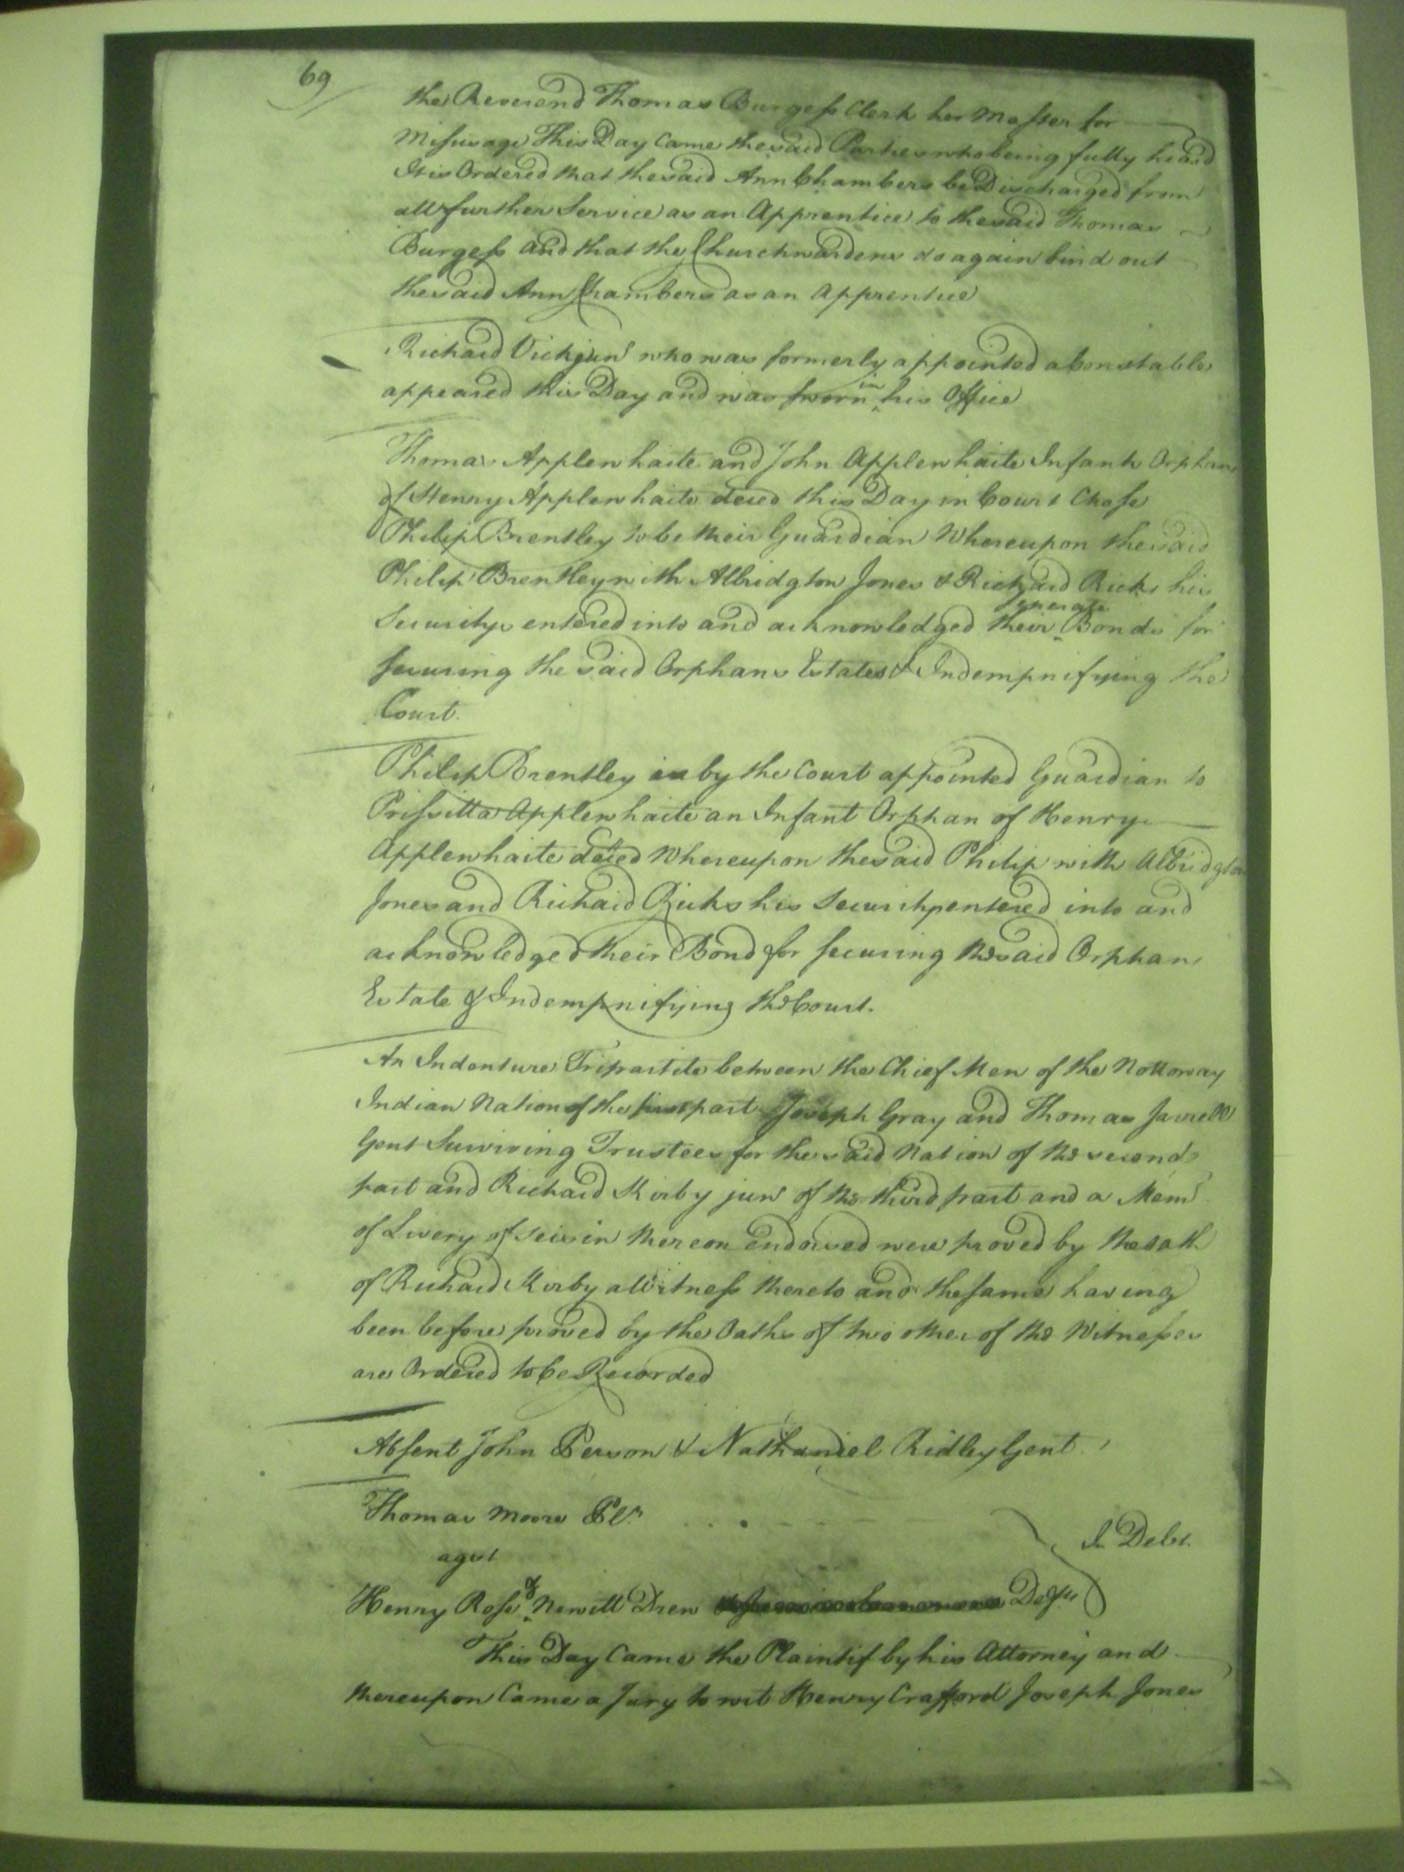 69
the Reverend Thomas Burgess Clerk her Master for
Misusage This Day Came the said Parties who being fully heard
It is Ordered that the said Ann Chambers be Discharged from
all further Service as an Apprentice to the said Thomas
Burgess and that the Churchwardens do again bind out
the said Ann Chambers as an Apprentice
Richard Vick junr who was formerly appointed a Constable
appeared this Day and was sworn in his Office
Thomas Applewhaite and John Applewhaite Infant Orphans
of Henry Applewhaite deced this Day in Court Chose
Philip Brentley to be their Guardian Whereupon the said
Philip Brentley with Albridgton Jones & Richard Ricks his
several
Securitys entered into and acknowledged their Bonds for
securing the said Orphans Estates & Indempnifying the
Court.
Philip Brentley is by the Court appointed Guardian to
Prissilla Applewhaite an Infant Orphan of Henry
Applewhaite deced Whereupon the said Philip with Albridgton
Jones and Richard Ricks his Securitys entered into and
acknowledged their Bond for securing the said Orphans
Estate & Indempnifying the Court.
An Indenture Tripartite between the Chief Men of the Nottoway
Indian Nation of the first part Joseph Gray and Thomas Jarrell
Gent Surviving Trustees for the said Nation of the second
part and Richard Kirby junr of the third part and a Memd
of Livery of seisin thereon endorsed were proved by the oath
of Richard Kirby a Witness thereto and the same having
been before proved by the Oaths of two other of the Witnesses
are Ordered to be Recorded
Absent John Person & Nathaniel Ridley Gent.
Thomas Moore Plr.
agst
In Debt.
Henry Rose & Newitt Drew Defts
This Day Came the Plaintif by his Attorney and
thereupon Came a Jury to wit Henry Crafford Joseph Jones